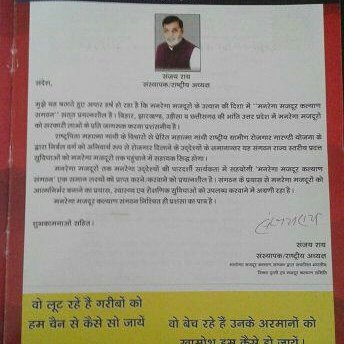 संजय राय
संस्थापक/राष्ट्रीय अध्यक्ष
संदेश,
मुझे यह बताते हुए अपार हर्ष हो रहा है कि मनरेगा मजदूरों के उत्थान की दिशा में "मनरेगा मजदूर कल्याण
संगठन" सतत् प्रयत्नशील है। बिहार, झारखण्ड, उड़ीसा व छत्तीसगढ़ की भांति उत्तर प्रदेश में मनरेगा मजदूरों
को सरकारी लाभों के प्रति जागरूक करना प्रशंसनीय है।
राष्ट्रपिता महात्मा गांधी के विचारों से प्रेरित महात्मा गांधी राष्ट्रीय ग्रामीण रोजगार गारण्टी योजना के
द्वारा निर्बल वर्ग को अनिवार्य रूप से रोजगार दिलाने के उद्देश्यों के समानान्तर यह संगठन राज्य स्तरीय प्रदत्त
सुविधाओं को मनरेगा मजदूरों तक पहुंचाने में सहायक सिद्ध होगा।
मनरेगा मजदूरों तक मनरेगा उद्देश्यों की पारदर्शी सार्थकता में सहयोगी "मनरेगा मजदूर कल्याण
संगठन" एक समान लक्ष्यों को प्राप्त करने/करवाने को प्रयत्नशील है। संगठन के प्रयास से मनरेगा मजदूरों को
आत्मनिर्भर बनाने का प्रयास, स्वास्थ्य एवं शैक्षणिक सुविधाओं को उपलब्ध करवाने में अग्रणी रहा है।
मनरेगा मजदूर कल्याण संगठन निश्चित ही प्रशंसा का पात्र है।
शुभकामनाओं सहित।
संजय राय
संस्थापक/राष्ट्रीय अध्यक्ष
मनरेगा मजदूर कल्याण संगठन
वो लूट रहे हैं गरीबों को
हम चैन से कैसे सो जायें
वो बेच रहे हैं उनके अरमानों को
खामोश हम कैसे हो जायें।